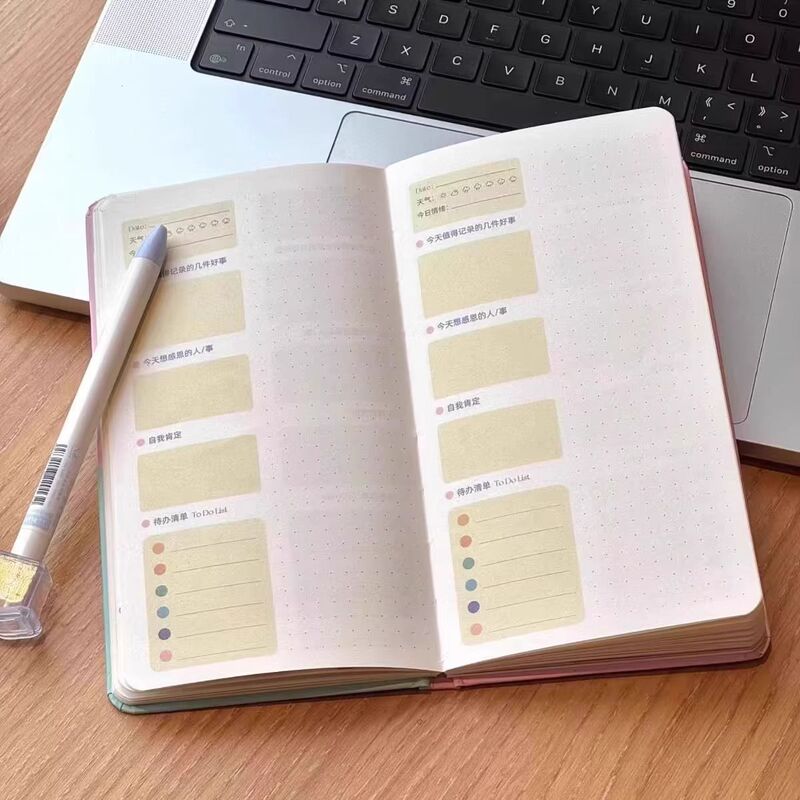 Date:
天气
得记录的几件好事
今天想感恩的人/事
自我肯定
待办清单 To Do List
Date:
天气:
今日情绪:
今天值得记录的几件好事
今天想感恩的人/事
自我肯定
待办清单 To Do List
A
S
D
F
G
H
J
K
L
Z
X
C
V
B
N
M
E
R
T
Y
U
I
O
P
9
0
fn
control
option
command
command
option